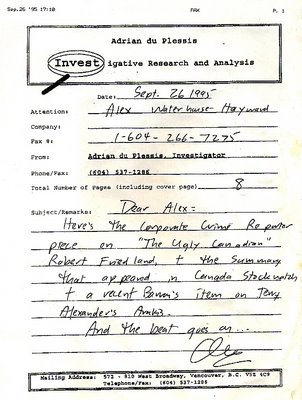 Sep.26 '95 17:10 FAX P. 1
Adrian du Plessis
Investigative Research and Analysis
Date: Sept. 26 1995
Attention: Alex Waterhouse-Hayward
Company:
Fax #: 1-604-266-7275
From: Adrian du Plessis, Investigator
Phone/Fax: (604) 537-1286
Total Number of Pages (including cover page) 8
Subject/Remarks: Dear Alex:
Here's the Corporate Crime Reporter
piece on "The Ugly Canadian"
Robert Friedland, + the summary
that appeared in Canada Stockwatch
+ a recent Barron's item on Terry
Alexander's Arakis.
And the beat goes on...
Mailing Address: 572 - 810 West Broadway, Vancouver, B.C. V5Z 4C9
Telephone/Fax: (604) 537-1286